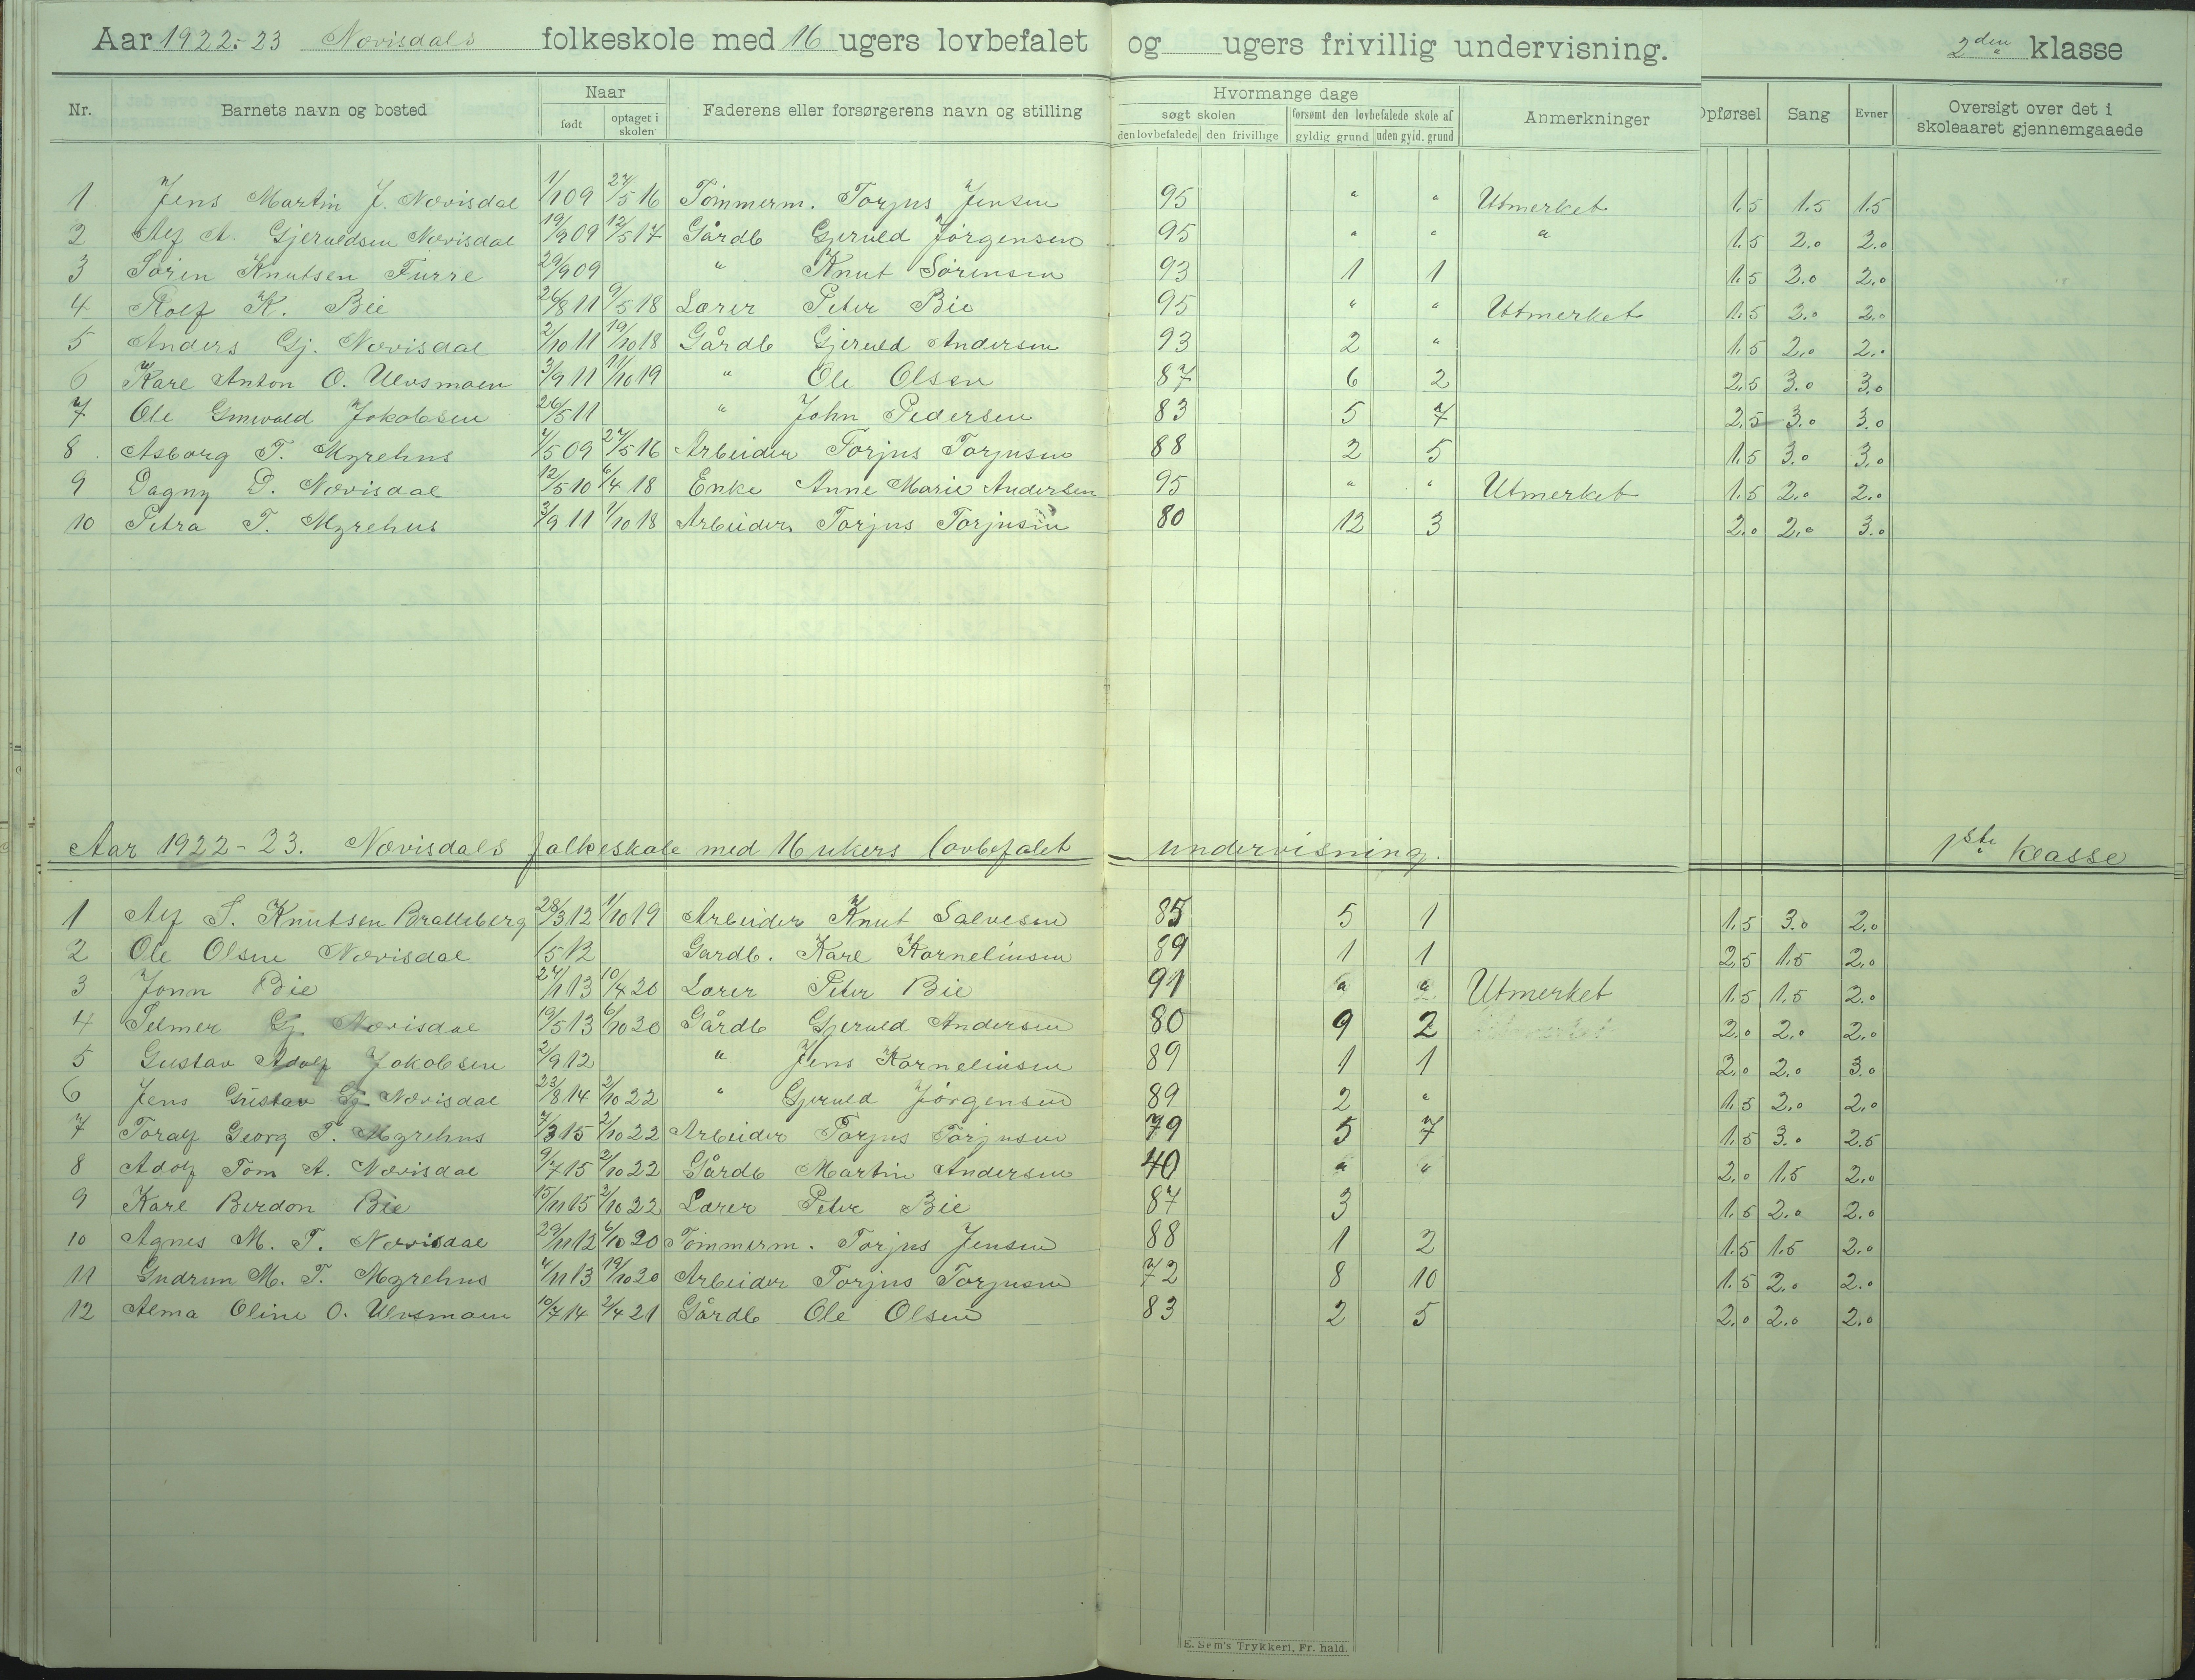 Aar 1922-23 Nævisdals folkeskole med 16 ugers lovbefalet og ugers frivillig undervisning. 2den klasse
Nr. Barnets navn og bosted Naar født optaget i skolen Faderens eller forsørgerens navn og stilling Hvormange dage søgt skolen den lovbefalede den frivillige forsømt den lovbefalede skole af gyldig grund uden gyld. grund Anmerkninger Opførsel Sang Evner Oversigt over det i skoleaaret gjennemgaaede
1 Jens Martin J. Nævisdal 1/1 09 27/5 16 Tömmerm. Torjus Jensen 95 " " Utmerket 1.5 1.5 1.5
2 Alf A. Gjeruldsen Nævisdal 19/9 09 12/5 17 Gårdb Gjeruld Jörgensen 95 " " " 1.5 2.0 2.0
3 Sören Knutsen Furre 29/9 09 " Knut Sörensen 93 1 1 1.5 2.0 2.0
4 Rolf K. Bie 26/8 11 9/5 18 Lærer Peter Bie 95 " " Utmerket 1.5 2.0 2.0
5 Anders Gj. Nævisdal 2/10 11 19/10 18 Gårdb Gjeruld Andersen 93 2 " 1.5 2.0 2.0
6 Karl Anton O. Ulvsmoen 3/9 11 11/10 19 " Ole Olsen 87 6 2 2.5 3.0 3.0
7 Ole Gunvald Jakobsen 26/5 11 " John Pedersen 83 5 7 2.5 3.0 3.0
8 Asborg T. Myrehus 7/5 09 27/5 16 Arbeider Torjus Torjusen 88 2 5 1.5 3.0 3.0
9 Dagny D. Nævisdal 12/5 10 6/4 18 Enke Anne Marie Andersen 95 " " Utmerket 1.5 2.0 2.0
10 Petra T. Myrehus 3/9 11 1/10 18 Arbeider Torjus Torjusen 80 12 3 2.0 2.0 3.0
Aar 1922-23. Nævisdals folkeskole med 16 ukers lovbefalet undervisning. 1ste klasse
1 Alf S. Knutsen Bratteberg 28/3 12 1/10 19 Arbeider Knut Salvesen 85 5 1 1.5 3.0 2.0
2 Ole Olsen Nævisdal 1512 Gardb. Karl Kornelinsen 89 1 1 2.5 1.5 2.0
3 Jonn Bie 27/1 13 10/4 20 Lærer Peter Bie 91 " " Utmerket 1.5 1.5 2.0
4 Selmer Gj. Nævisdal 19/5 13 6/10 20 Gårdb Gjeruld Andersen 80 9 2 2.0 2.0 2.0
5 Gustav Adolf Jakobsen 2/9 12 " Jens Korneliusen 89 1 1 2.0 2.0 3.0
6 Jens Gustav Gj. Nævisdal 23/8 14 2/10 22 " Gjeruld Jörgensen 89 2 " 1.5 2.0 2.0
7 Toralf Georg T. Myrehus 7/3 15 2/10 22 Arbeider Torjus Torjusen 79 5 7 1.5 3.0 2.5
8 Adolf Tom A. Nævisdal 9/7 15 2/10 22 Gårdb Martin Andersen 40 " " 2.0 1.5 2.0
9 Karl Berdon Bie 15/11 15 2/10 22 Lærer Peter Bie 87 3 1.5 2.0 2.0
10 Agnes M. T. Nævisdal 29/11 12 6/10 20 Tömmerm. Torjus Jensen 88 1 2 1.5 1.5 2.0
11 Gudrun M. T. Myrehus 4/11 13 19/10 20 Arbeider Torjus Torjusen 72 8 10 1.5 2.0 2.0
12 Alma Oline O. Ulvsmoen 10/7 14 2/4 21 Gårdb Ole Olsen 83 2 5 2.0 2.0 2.0
E. Sem's Trykkeri, Fr. hald.